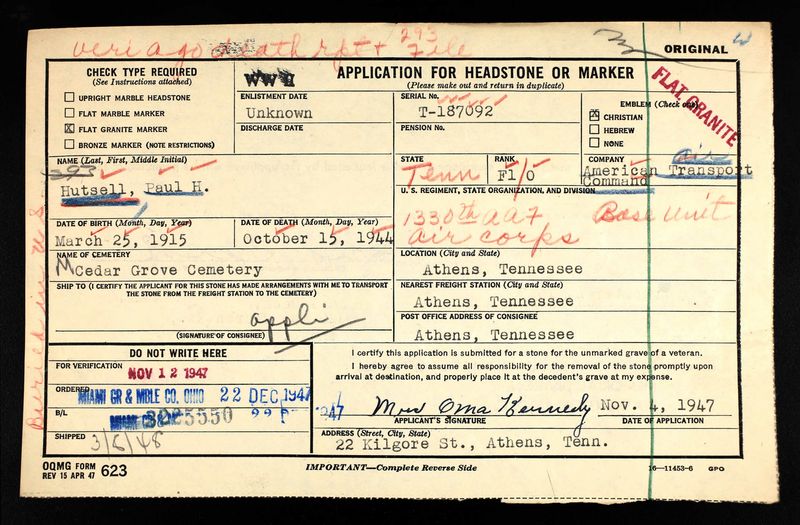 veri a go death rpt + 293 File
ORIGINAL
CHECK TYPE REQUIRED
(See Instructions attached)
UPRIGHT MARBLE HEADSTONE
FLAT MARBLE MARKER
X FLAT GRANITE MARKER
BRONZE MARKER (NOTE RESTRICTIONS)
WW II
APPLICATION FOR HEADSTONE OR MARKER
(Please make out and return in duplicate)
ENLISTMENT DATE
Unknown
DISCHARGE DATE
SERIAL No.
T-187092
PENSION No.
EMBLEM (Check one)
X CHRISTIAN
HEBREW
NONE
FLAT GRANITE
NAME (Last, First, Middle Initial)
293
Hutsell, Paul H.
STATE
Tenn
RANK
Fl/O
COMPANY
Air
American Transport
Command
U. S. REGIMENT, STATE ORGANIZATION, AND DIVISION
1330th AAF Base Unit
Air corps
DATE OF BIRTH (Month, Day, Year)
March 25, 1915
DATE OF DEATH (Month, Day, Year)
October 15, 1944
NAME OF CEMETERY
Cedar Grove Cemetery
LOCATION (City and State)
Athens, Tennessee
SHIP TO (I CERTIFY THE APPLICANT FOR THIS STONE HAS MADE ARRANGEMENTS WITH ME TO TRANSPORT
THE STONE FROM THE FREIGHT STATION TO THE CEMETERY)
appli
(SIGNATURE OF CONSIGNEE)
NEAREST FREIGHT STATION (City and State)
Athens, Tennessee
POST OFFICE ADDRESS OF CONSIGNEE
Athens, Tennessee
Buried in U S
DO NOT WRITE HERE
FOR VERIFICATION
NOV 12 1947
ORDERED
MIAMI GR & MBLE CO. OHIO 22 DEC 1947
B/L
3225550
SHIPPED
3/8/48
I certify this application is submitted for a stone for the unmarked grave of a veteran.
I hereby agree to assume all responsibility for the removal of the stone promptly upon
arrival at destination, and properly place it at the decedent's grave at my expense.
Mrs Oma Kennedy Nov. 4, 1947
APPLICANT'S SIGNATURE DATE OF APPLICATION
ADDRESS (Street, City, State)
22 Kilgore St., Athens, Tenn.
OQMG FORM
REV 15 APR 47 623
IMPORTANT—Complete Reverse Side
16—11453-6 GPO